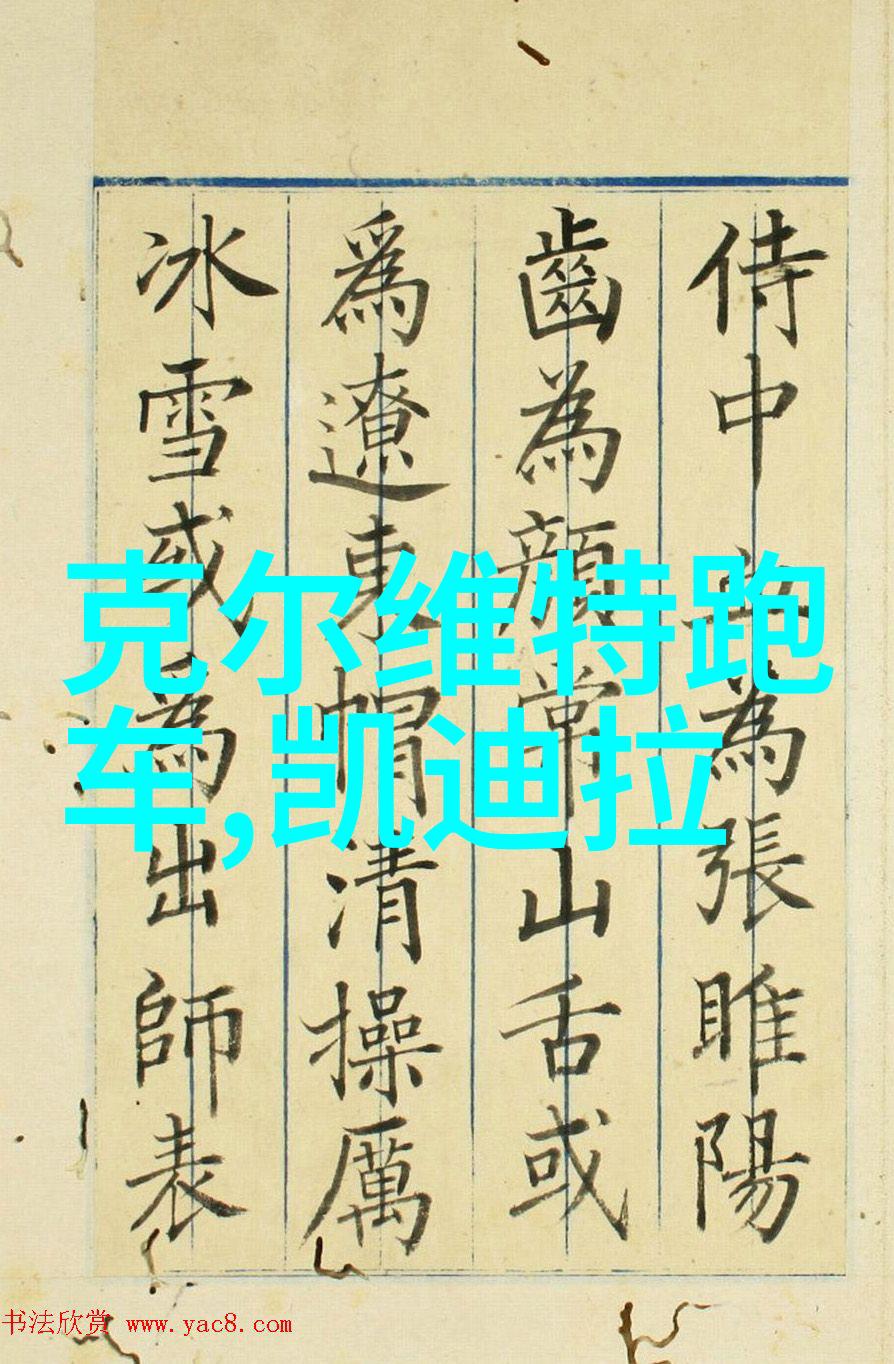 侍中為張睢陽
齒為顏常山舌或
爲遼東帽清操厲
冰雪或為出師表
克尔维特跑
车,凯迪拉
书法欣赏 www.yac8.com